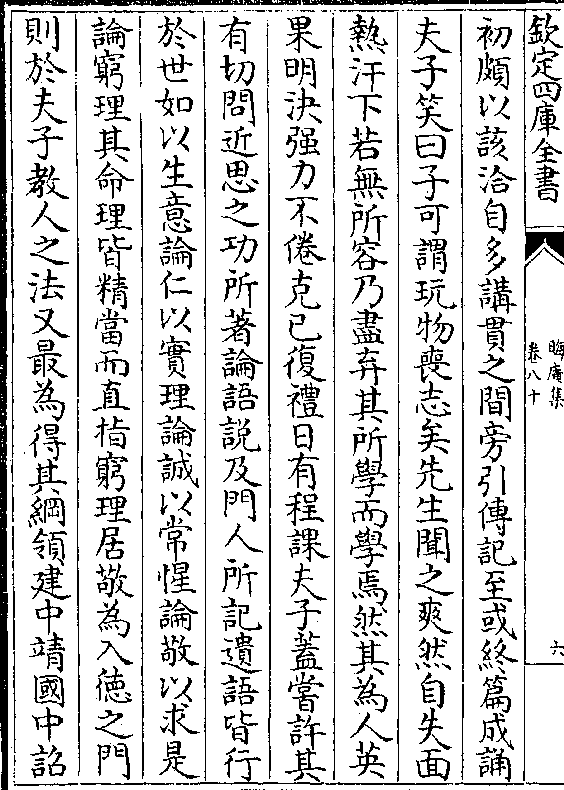 欽定四庫全書
晦庵集
卷八十
六
初頗以該洽自多講貫之間旁引傳記至或終篇成誦
夫子笑曰子可謂玩物喪志矣先生聞之爽然自失面
熱汗下若無所容乃盡弃其所學而學焉然其為人英
果明決强力不倦克已復禮日有程課夫子蓋嘗許其
有切問近思之功所著論語説及門人所記遺語皆行
於世如以生意論仁以實理論誠以常惺論敬以求是
論窮理其命理皆精當而直指窮理居敬為入徳之門
則於夫子教人之法又最為得其綱領建中靖國中詔